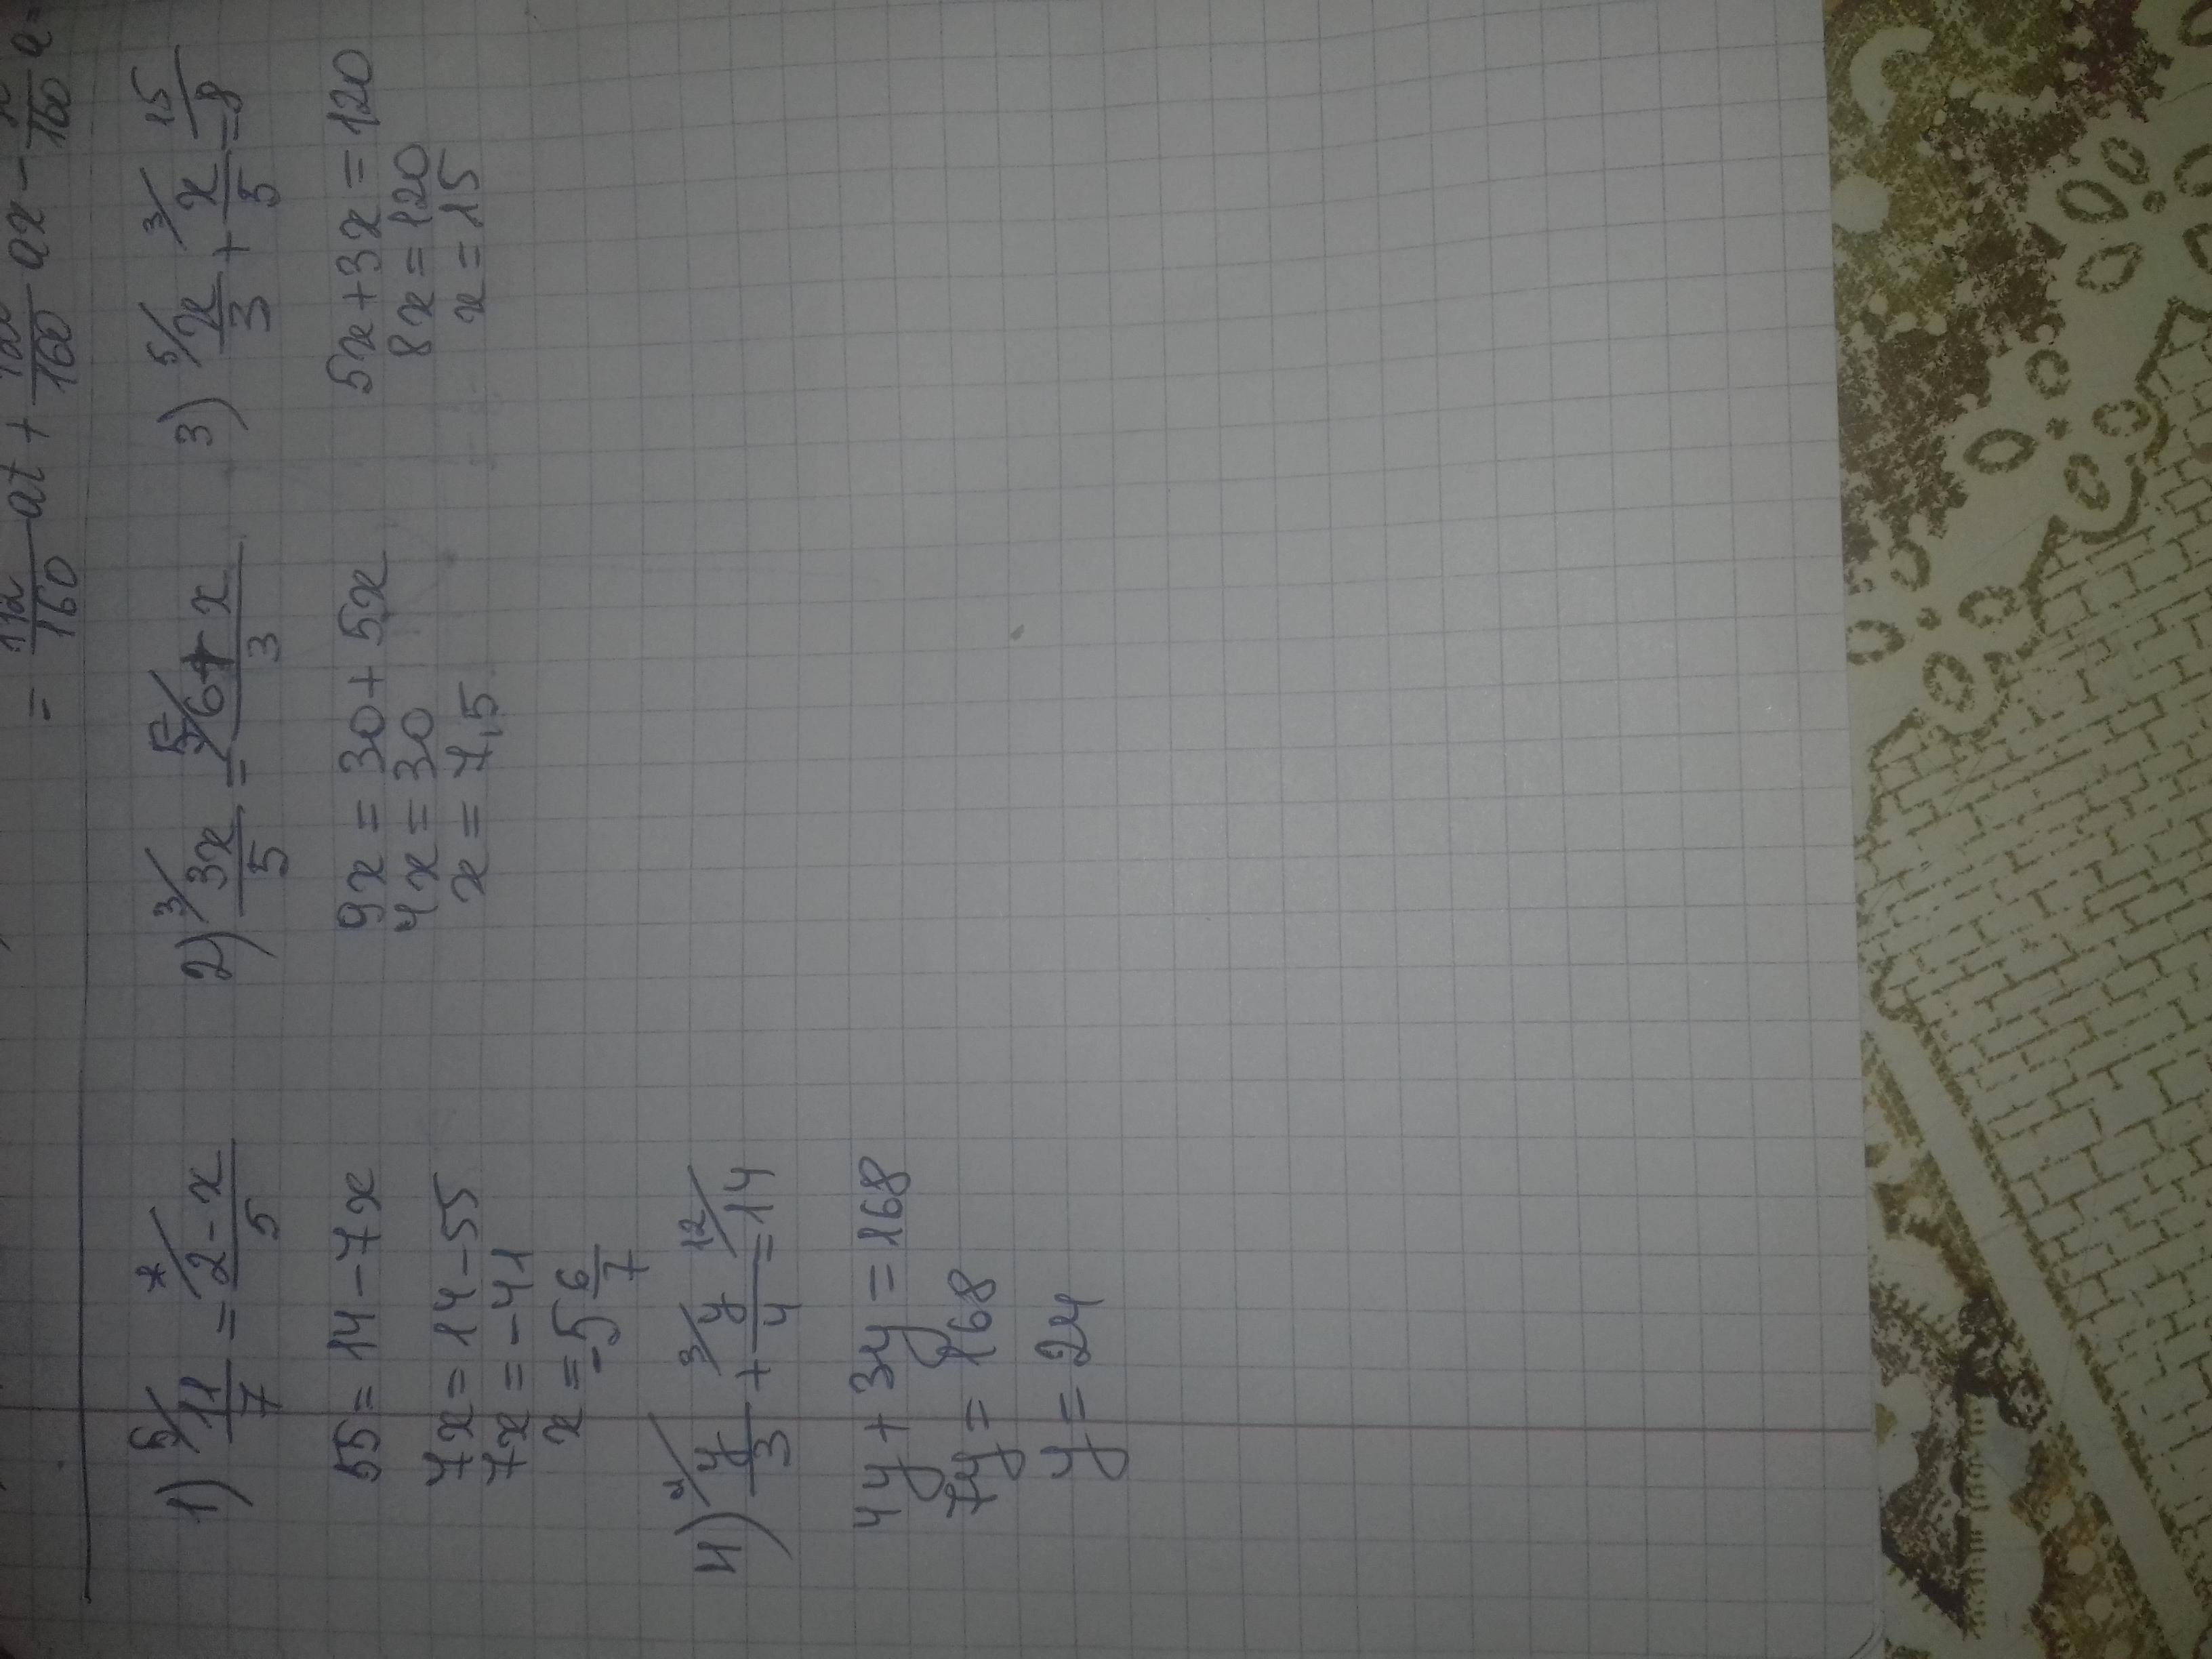 = 112/160 at + 160 ax - 160
1) 5/ 11/7 = 7/ 2-x/5
55 = 14 - 7x
7x = 14 - 55
7x = -41
x = -5 6/7
2) 3/ 3x/5 = 5/ 6+x/3
9x = 30 + 5x
4x = 30
x = 7,5
3) 5/ x/3 + 3/ x/5 = 15/ 8
5x + 3x = 120
8x = 120
x = 15
4) 4/ y/3 + 3/ y/4 = 12/ 14
4y + 3y = 168
7y = 168
y = 24